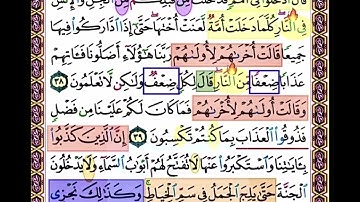 قَالَ ٱدۡخُلُواْ فِيٓ أُمَمٖ قَدۡ خَلَتۡ مِن قَبۡلِكُم مِّنَ ٱلۡجِنِّ وَٱلۡإِنسِ
فِي ٱلنَّارِۖ كُلَّمَا دَخَلَتۡ أُمَّةٞ لَّعَنَتۡ أُخۡتَهَاۖ حَتَّىٰٓ إِذَا ٱدَّارَكُواْ فِيهَا
جَمِيعٗا قَالَتۡ أُخۡرَىٰهُمۡ لِأُولَىٰهُمۡ رَبَّنَا هَٰٓؤُلَآءِ أَضَلُّونَا فَـَٔاتِهِمۡ
عَذَابٗا ضِعۡفٗا مِّنَ ٱلنَّارِۖ قَالَ لِكُلّٖ ضِعۡفٞ وَلَٰكِن لَّا تَعۡلَمُونَ ٣٨
وَقَالَتۡ أُولَىٰهُمۡ لِأُخۡرَىٰهُمۡ فَمَا كَانَ لَكُمۡ عَلَيۡنَا مِن فَضۡلٖ
فَذُوقُواْ ٱلۡعَذَابَ بِمَا كُنتُمۡ تَكۡسِبُونَ ٣٩ إِنَّ ٱلَّذِينَ كَذَّبُواْ
بِـَٔايَٰتِنَا وَٱسۡتَكۡبَرُواْ عَنۡهَا لَا تُفَتَّحُ لَهُمۡ أَبۡوَٰبُ ٱلسَّمَآءِ وَلَا يَدۡخُلُونَ
ٱلۡجَنَّةَ حَتَّىٰ يَلِجَ ٱلۡجَمَلُ فِي سَمِّ ٱلۡخِيَاطِۚ وَكَذَٰلِكَ نَجۡزِي